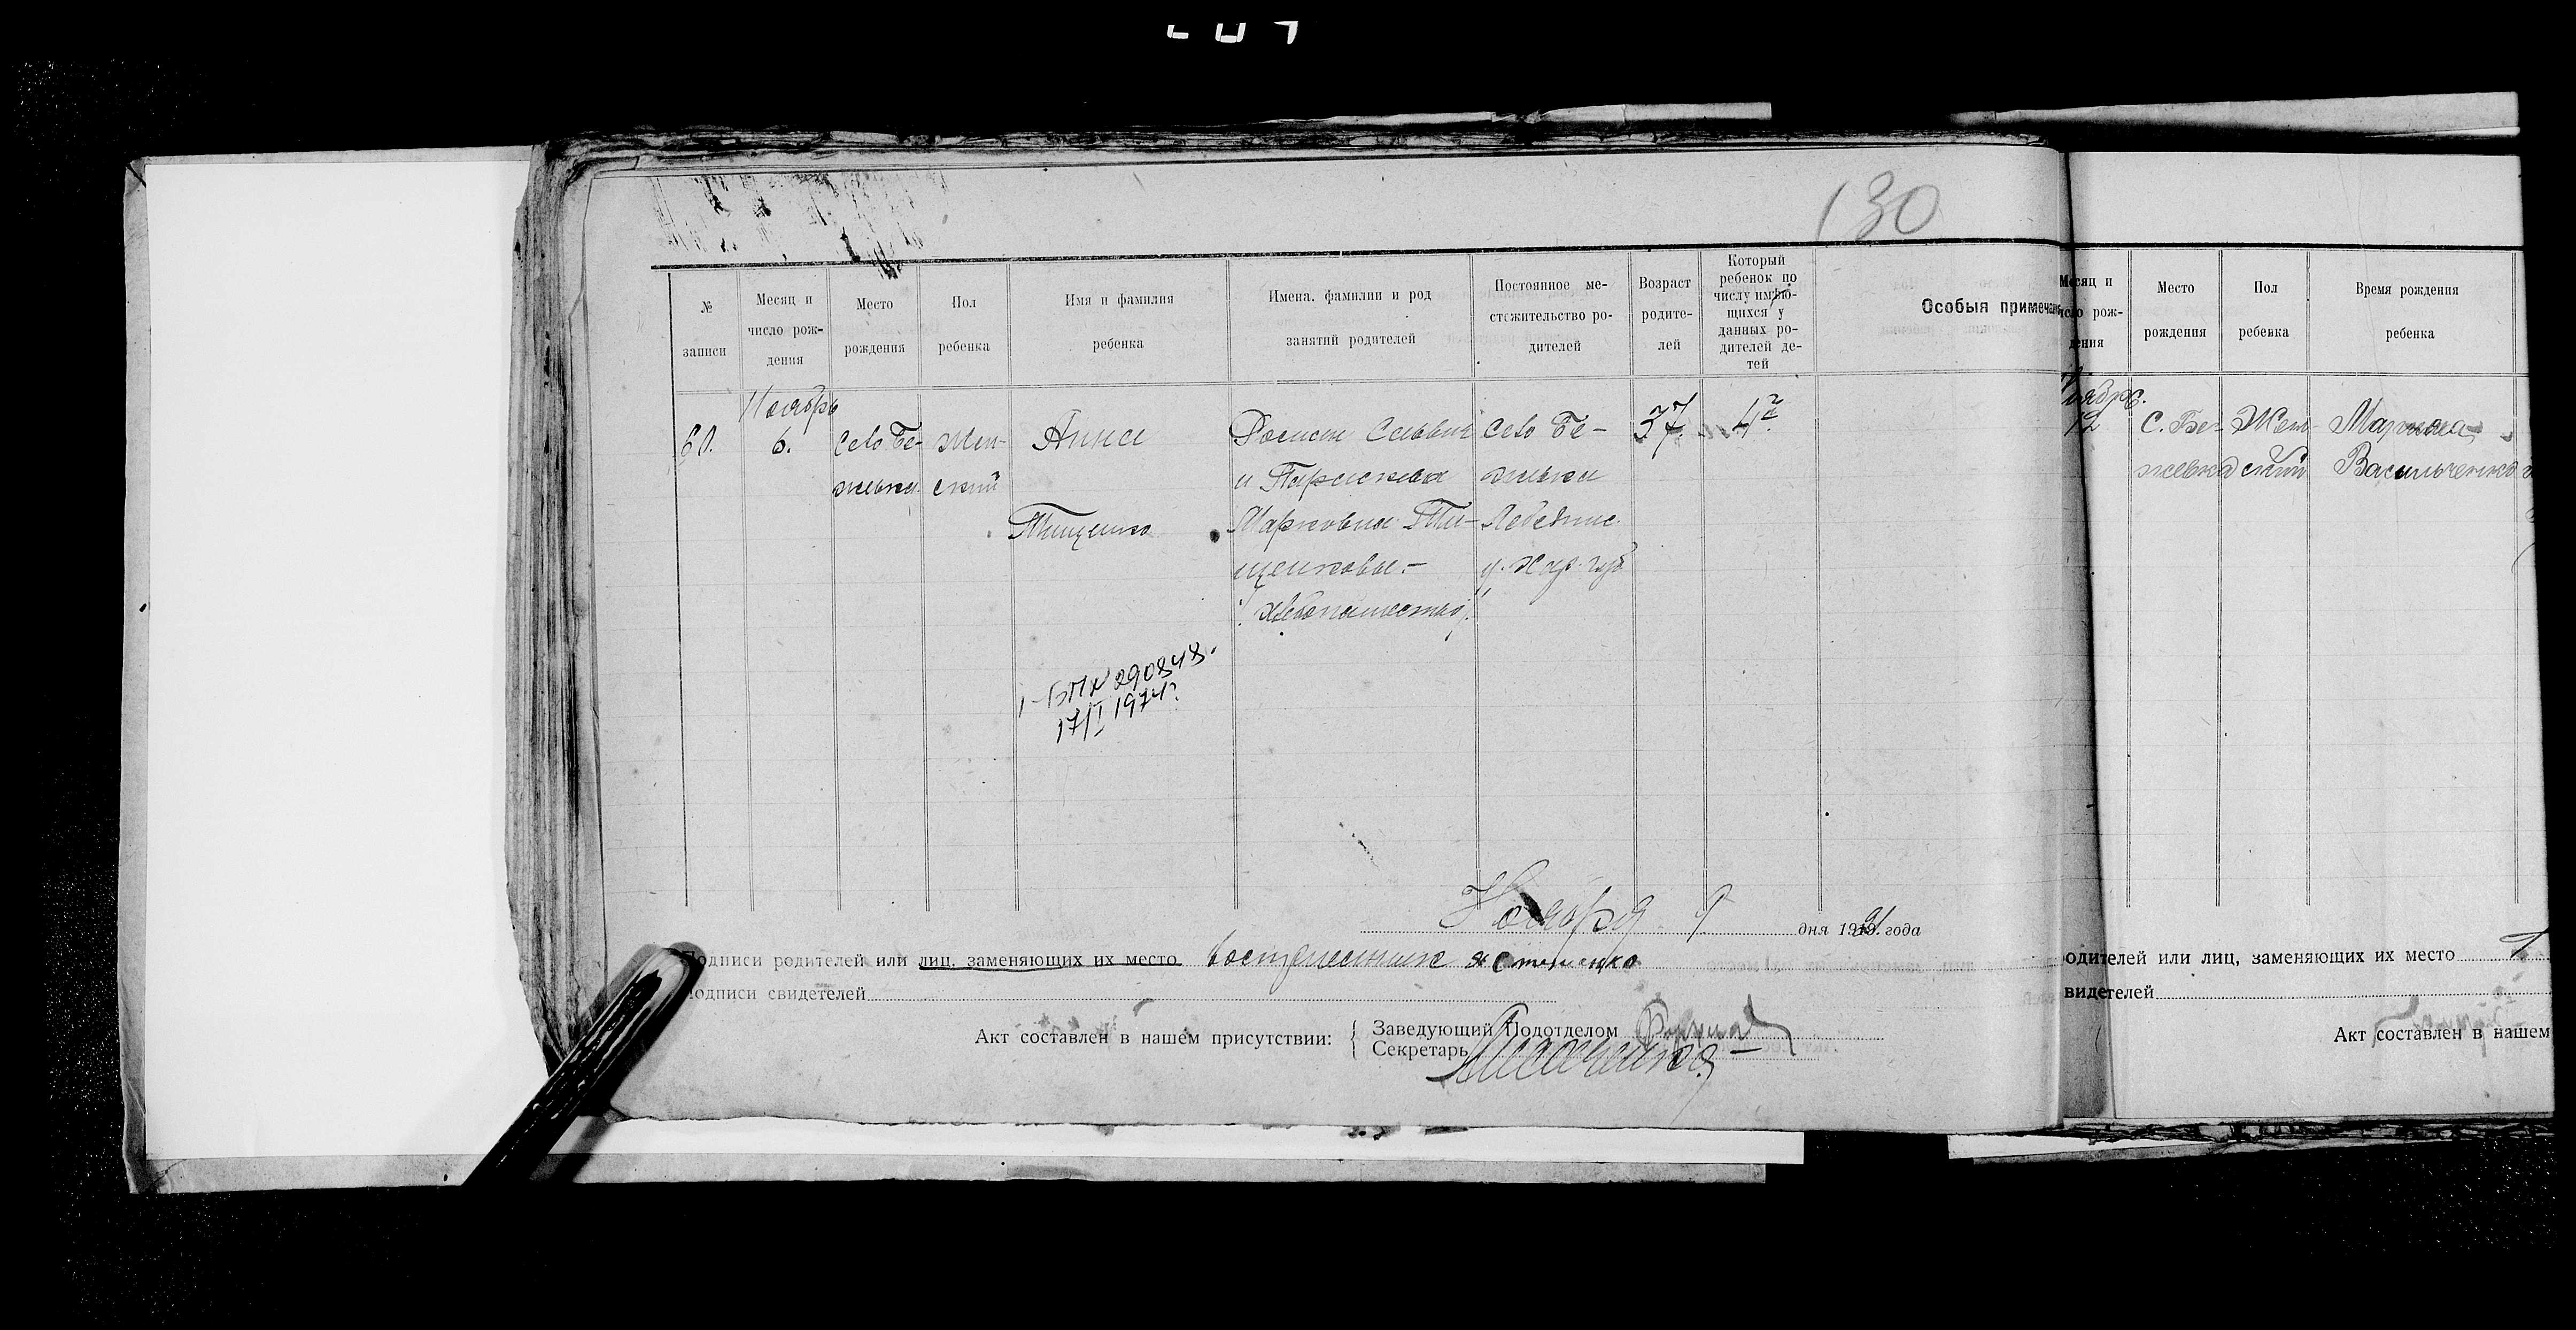 130
№ записи
Месяц и число рож-дения
Место рождения
Пол ребенка
Имя и фамилия ребенка
Имена, фамилии и род занятий родителей
Постоянное ме-стожительство ро-дителей
Возраст родите-лей
Который ребенок по числу имѣю-щихся у данных ро-дителей де-тей
Особыя примечан
60.
Ноября
6.
Село Бе-
жевка
Жен-
ский
Анна
Тищенко
и Параскева
Марковна Ти-
щенковы.-
хлебопашество
Село Бе-
жевка
Лебединс.
у. Хар. губ
37.
4й
290848.
17/I 1974г
Ноября 9 дня 1921 года
Подписи родителей или лиц, заменяющих их место
Подписи свидетелей
Акт составлен в нашем присутствии:
Заведующий Подотделом
Секретарь
Месяц и
число рож-
дения
Место
рождения
Пол
ребенка
Время рождения
ребенка
Ноября
12
С. Бе-
жевка
Жен-
ский
Васильченко
одителей или лиц, заменяющих их место
видетелей
Акт составлен в нашем